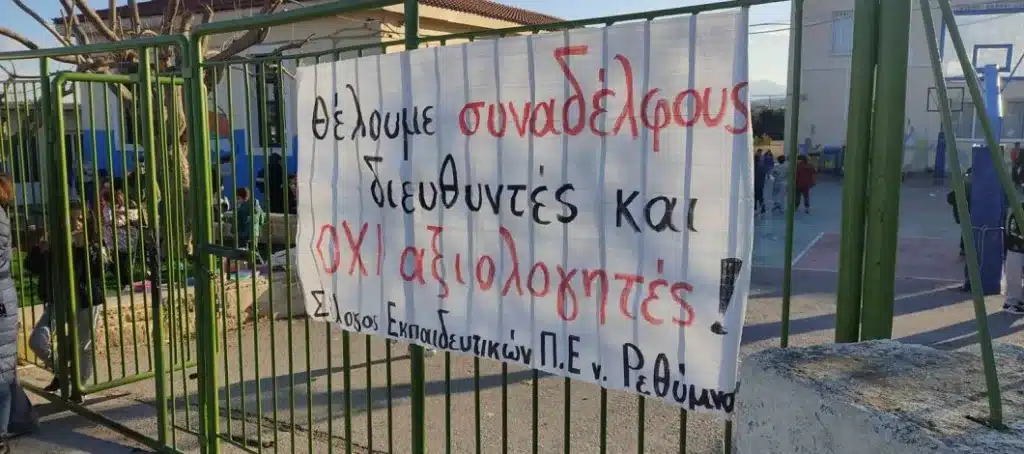 θέλουμε συναδέλφους
διευθυντές και
ΟΧΙ αξιολογητές!
Εκπαιδευτικών Π.Ε ν. Ρεθύμνο